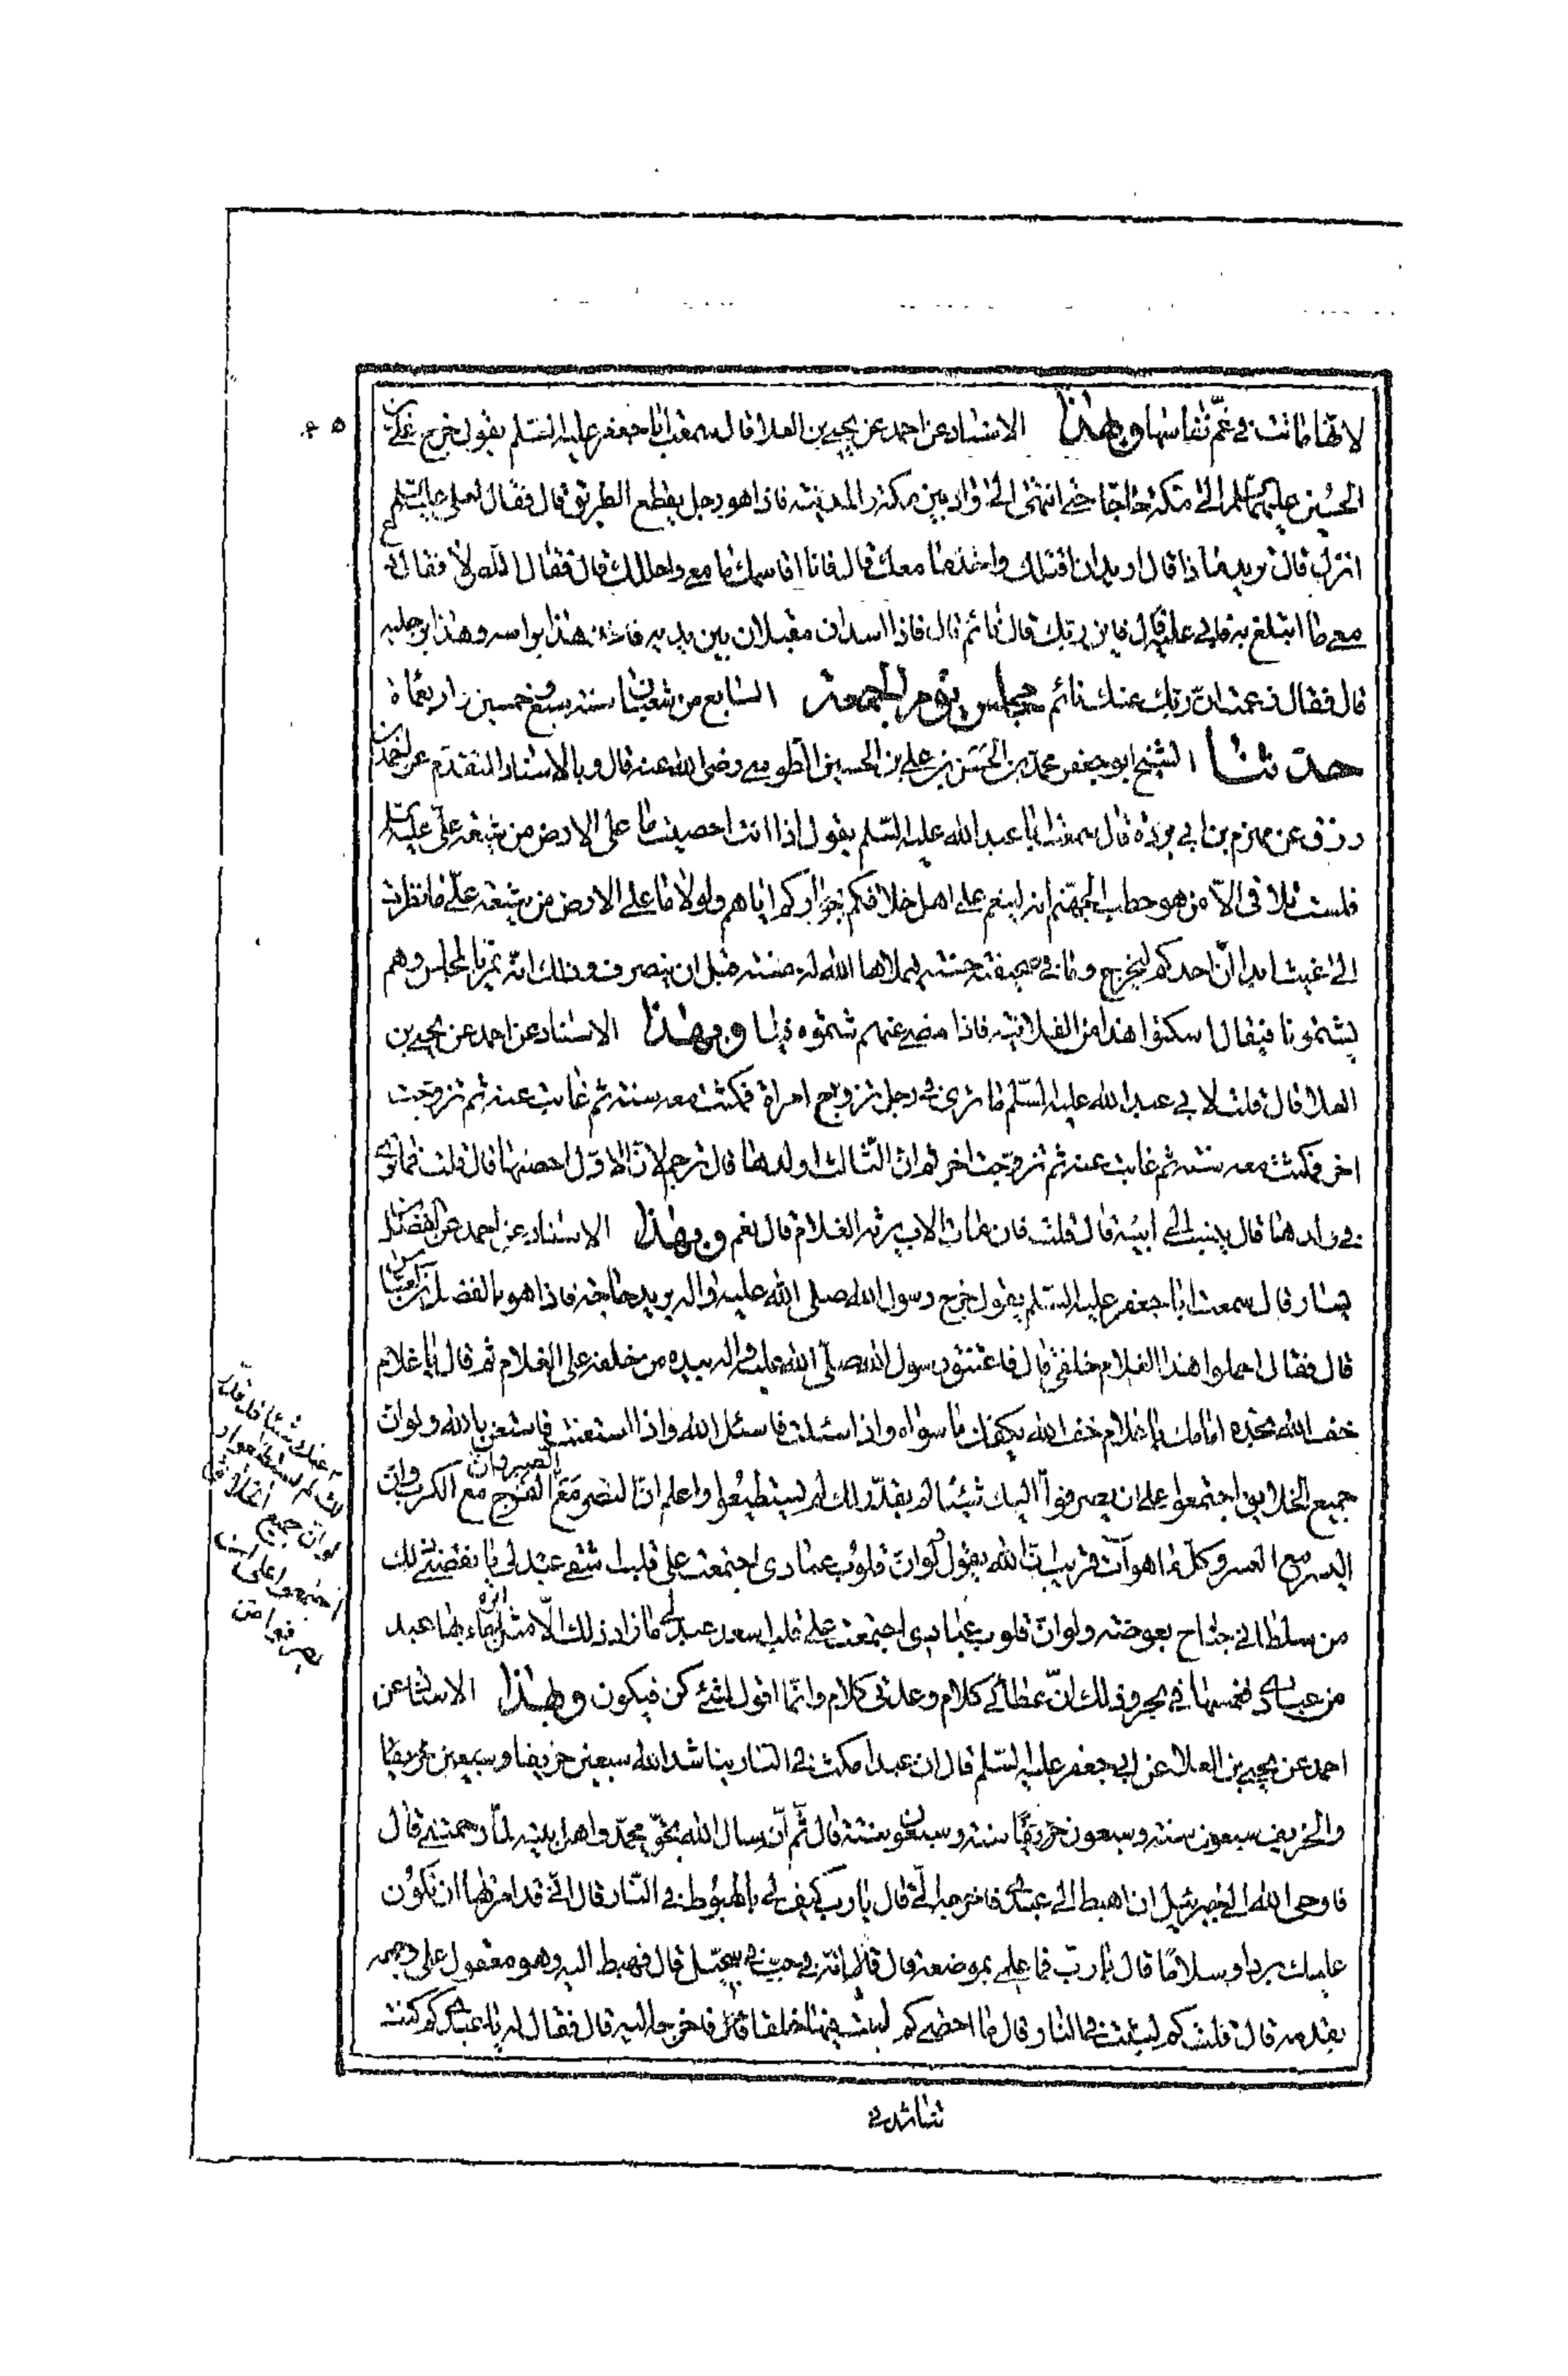 لانها ماتت في غم نفاسها وبهذا الاسناد عن احمد عن يحيى بن العلا قال سمعت ابا جعفر عليه السلم يقول خرج علي بن
الحسين عليهما السلم الى مكة حاجا حتى انتهى الى واد بين مكة والمدينة فاذا هو رجل يقطع الطريق قال فقال لعلي عليه السلم
انزل قال تريد ماذا قال اريد ان اقتلك واخذ ما معك قال فانا اقاسمك ما معي واحللك قال فقال اللص لا فقال دع
معي ما ابتلغ به فابى عليه قال فاين ربك قال نائم قال فاذا اسدان مقبلان بين يديه فاخذ هذا براسه وهذا برجليه
قال فقال زعمت ان ربك عنك نائم مجلس يوم الجمعة السابع من شعبان سنة سبع وخمسين واربعمأة
حدثنا الشيخ ابو جعفر محمد بن الحسن بن علي بن الحسين الطوسي رضى الله عنه قال وبالاسناد المتقدم عن احمد بن
رزق عن مهزم بن ابي بردة قال سمعت ابا عبد الله عليه السلم يقول اذا انت احصيت ما على الارض من شيعة علي عليه السلم
فلست تلاقى الا من هو حطب لجهنم انه لينعم على اهل خلافكم بجواركم اياهم ولولا ما على الارض من شيعة علي ما نظرت
الى غيث ابدا ان احدكم ليخرج وما في صحيفته حسنة فيملاها الله له حسنة قبل ان ينصرف وذلك انه يمر بالمجلس وهم
يشتمونا فيقال اسكتوا هذا من الفلانية فاذا مضى عنهم شتموه فينا وبهذا الاسناد عن احمد عن يحيى بن
العلا قال قلت لابي عبد الله عليه السلم ما ترى في رجل تزوج امراة فمكثت معه سنة ثم غابت عنه ثم تزوجت
اخر فمكثت معه سنة ثم غابت عنه ثم تزوجت اخر ثم ان الثالث اولدها قال ترجم لان الاول احصنها قال قلت فما ترى
في ولدها قال ينسب الى ابيه قال قلت فان مات الاب يرثه الغلام قال نعم وبهذا الاسناد عن احمد عن الفضل بن
يسار قال سمعت ابا جعفر عليه السلم يقول خرج رسول الله صلى الله عليه واله يريد حاجة فاذا هو بالفضل بن العباس
قال فقال احملوا هذا الغلام خلفي قال فاعتنق رسول الله صلى الله عليه واله بيده من خلفه على الغلام ثم قال يا غلام
خف الله تجده امامك يا غلام خف الله يكفك ما سواه واذا سئلت فاسئل الله واذا استعنت فاستعن بالله ولو ان
جميع الخلايق اجتمعوا على ان يصرفوا اليك شيئا لم يقدر لك لم يستطيعوا واعلم ان النصر مع الصبر وان الفرج مع الكرب وان
اليسر مع العسر وكل ما هو آت قريب ان الله يقول لو ان قلوب عبادى اجتمعت على قلب اشقى عبد لي ما نقضني ذلك
من سلطاني جناح بعوضة ولو ان قلوب عبادي اجتمعت على قلب اسعد عبد لي ما زاد ذلك الا مثل ابرة جاء بها عبد
من عبادي فغمسها في بحر وذلك ان عطائي كلام وعدتى كلام وانما اقول لشئ كن فيكون وبهذا الاسناد عن
احمد عن يحيى بن العلا عن ابي جعفر عليه السلم قال ان عبدا مكث في النار يناشد الله سبعين خريفا وسبعين خريفا
والخريف سبعون سنة وسبعون خريفا سنة وسبعون سنة قال ثم ان سال الله بحق محمد واهل بيته لما رحمتني قال
فاوحى الله الى جبرئيل ان اهبط الى عبدى فاخرجه الي قال يا رب كيف لي بالهبوط في النار قال اني قد امرتها ان تكون
عليك بردا وسلاما قال يا رب فما علمي بموضعه قال انه في جب في سجيل قال فهبط اليه وهو معقول على وجهه
بقدمه قال قلت كم لبثت في النار قال ما احصى كم لبثت فيها خلفا فاخرجه اليه قال فقال له يا عبدى كم كنت
تناشدني
عنك شيئا قد قدر
لك لم يستطيعوا و
لو ان جميع الخلايق
اجتمعوا على ان
يصرفوا